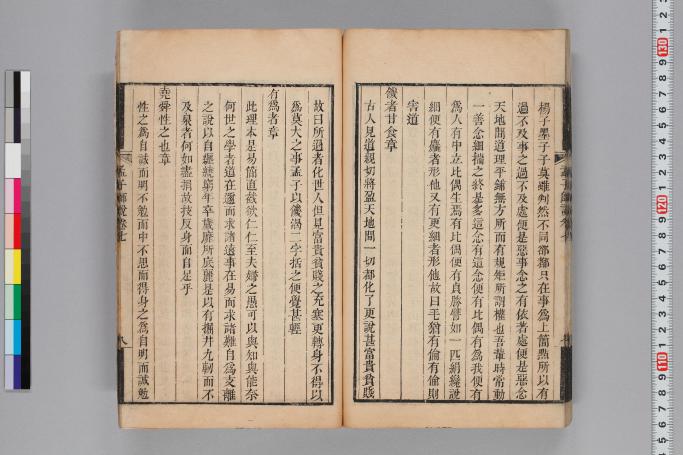 楊子墨子子莫雖判然不同都只在事爲上箇㸃所以有
過不及事之過不及處便是惡事念之有依著處便是惡念
天地間道理平鋪無方所而有規矩所謂權也吾輩時常動
一善念細揣之終是多這念有這念便有比偶有爲我便有
爲人有中立比偶生焉有比偶便有負勝譬如一匹絹纔說
細便有麤者形他又有更細者形他故曰毛猶有倫有倫則
害道
饑者甘食章
古人見道親切將盈天地間一切都化了更說甚富貴貧賤
故曰所過者化世人但見富貴貧賤之充塞更轉身不得以
爲莫大之事孟子以饑渴二字括之便覺甚輕
有爲者章
此理本是易簡直截欲仁仁至夫婦之愚可以與知與能奈
何世之學者道在邇而求諸遠事在易而求諸難自爲支離
之說以自纏繞窮年卒歲靡所底麗是以有掘井九軔而不
及泉者何如盡捐故技反身而自足乎
堯舜性之也章
性之爲自誠而明不勉而中不思而得身之爲自明而誠勉
孟子師說卷七
八